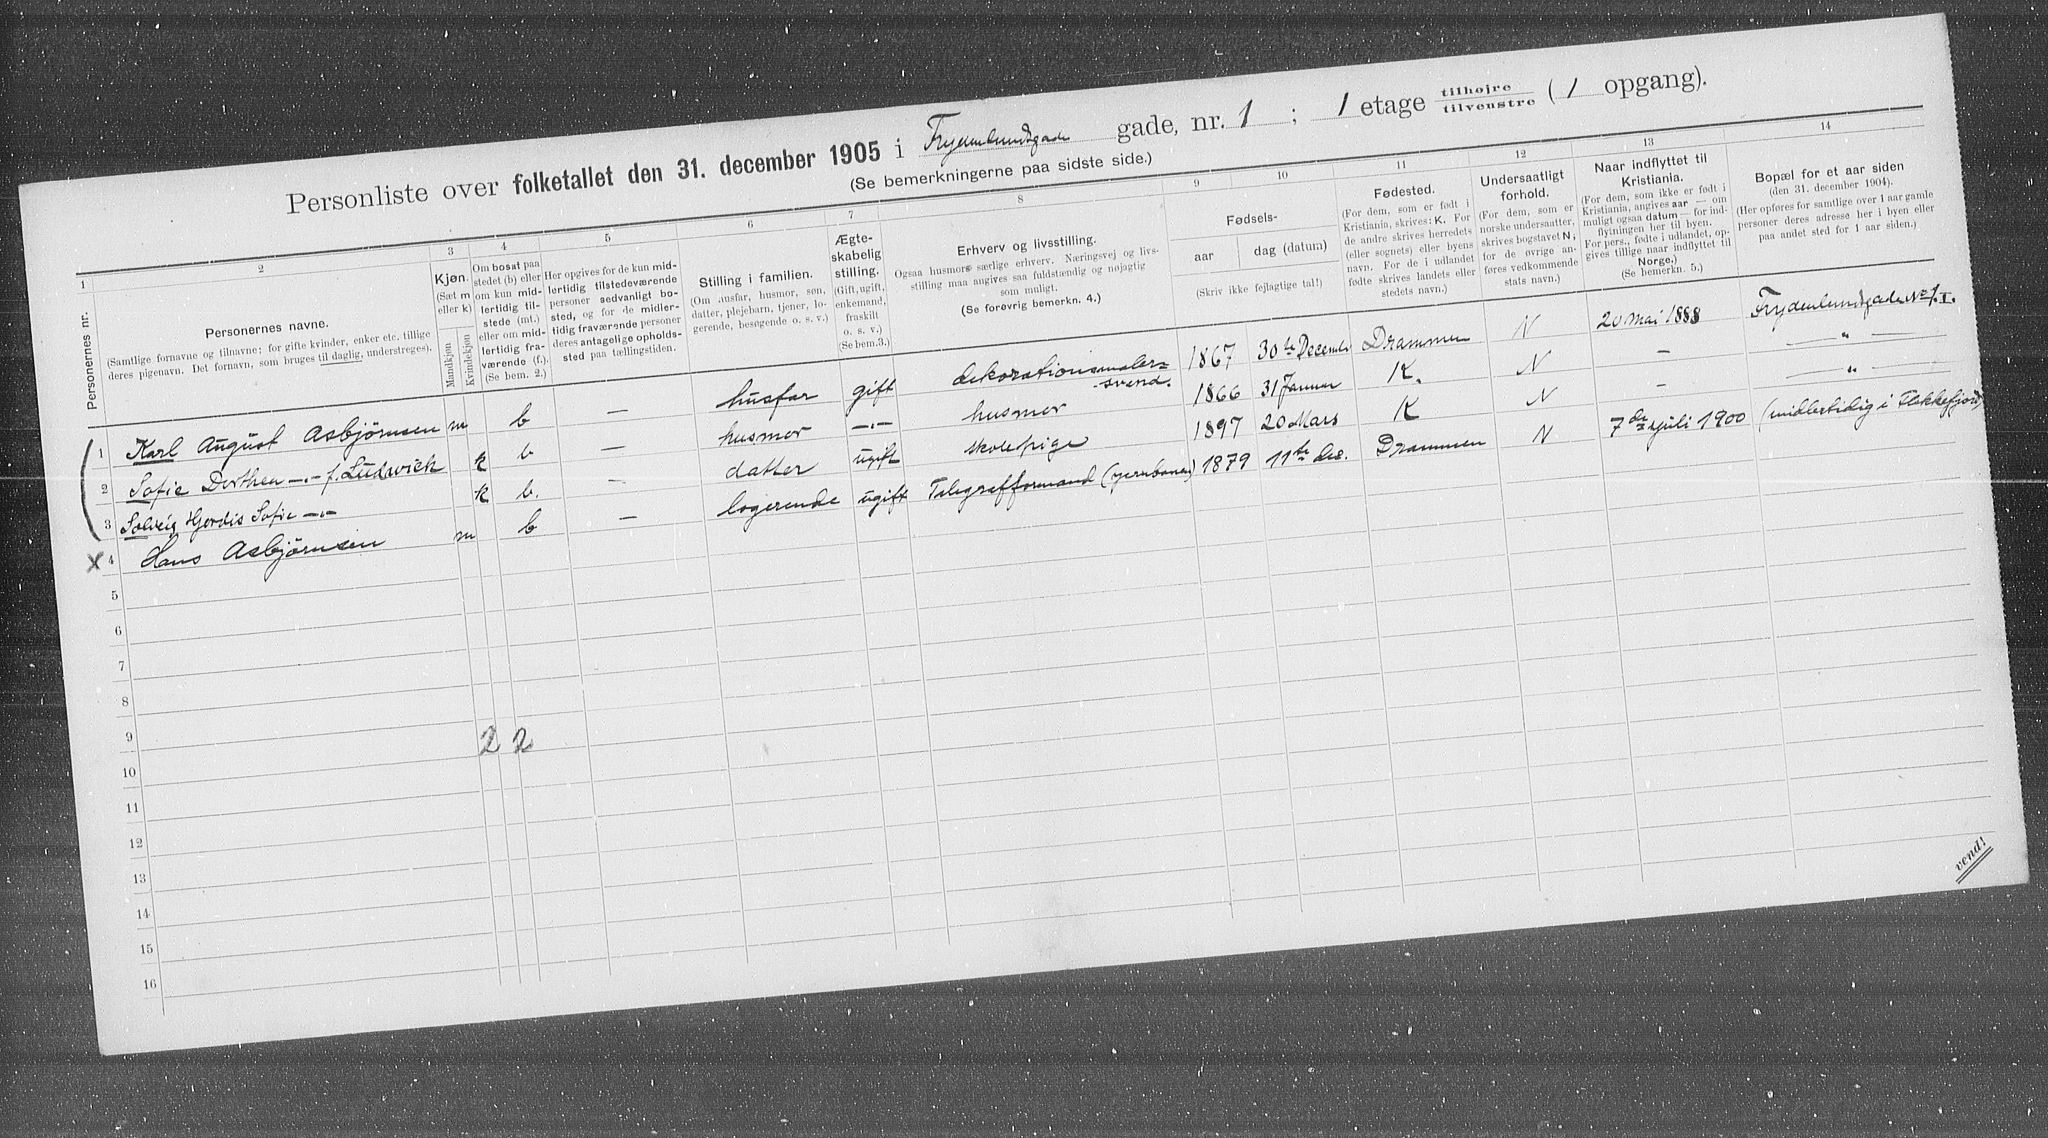 Personliste over folketallet den 31. december 1905 i Frydenlundsgade gade, nr. 1 ; 1 etage tilhøjre tilvenstre ( 1 opgang).
(Se bemerkningerne paa sidste side.)
1 2 3 4 5 6 7 8 9 10 11 12 13 14
Personernes nr.
Personernes navne.
(Samtlige fornavne og tilnavne; for gifte kvinder, enker etc. tillige
deres pigenavn. Det fornavn, som bruges til daglig, understreges).
Kjøn.
(Sæt m
eller k)
Mandkjøn
Kvindekjøn
Om bosat paa
stedet (b) eller
om kun mid-
lertidig til-
stede (mt.)
eller om mid-
lertidig fra-
værende (f.).
(Se bem. 2.)
Her opgives for de kun mid-
lertidig tilstedeværende
personer sedvanligt bo-
sted, og for de midler-
tidig fraværende personer
deres antagelige opholds-
sted paa tællingstiden.
Stilling i familien.
(Om husfar, husmor, søn,
datter, plejebarn, tjener, lo-
gerende, besøgende o. s. v.)
Ægte-
skabelig
stilling.
(Gift, ugift,
enkemand,
fraskilt
o. s. v.)
(Se bem.3.)
Erhverv og livsstilling.
Ogsaa husmors særlige erhverv. Næringsvej og livs-
stilling maa angives saa fuldstændig og nøjagtig
som muligt.
(Se forøvrig bemerkn. 4.)
Fødsels-
aar dag (datum)
(Skriv ikke fejlagtige tal!)
Fødested.
(For dem, som er født i
Kristiania, skrives: K. For
de andre skrives herredets
(eller sognets) eller byens
navn. For de i udlandet
fødte skrives landets eller
stedets navn.)
Undersaatligt
forhold.
(For dem, som er
norske undersaatter,
skrives bogstavet N;
for de øvrige an-
føres vedkommende
stats navn.)
Naar indflyttet til
Kristiania.
(For dem, som ikke er født i
Kristiania, angives aar — om
muligt ogsaa datum — for ind-
flytningen her til byen.
For pers., fødte i udlandet, op-
gives tillige naar indflyttet til
Norge.)
(Se bemerkn. 5.)
Bopæl for et aar siden
(den 31. december 1904).
(Her opføres for samtlige over 1 aar gamle
personer deres adresse her i byen eller
paa andet sted for 1 aar siden.)
1 Karl August Asbjörnsen m b — husfar gift dekorationsmaler-
svend. 1867 30te December Drammen N 20 Mai 1888 Frydenlundsgade No 1. I.
2 Sofie Dorthea —"— f. Ludwick k b — husmor —"— husmor 1866 31 Januar K. N — — " —
3 Solveig Hjordis Sofie —"— k b. — datter ugift skolepige 1897 20 Mars K N — — " —
x 4 Hans Asbjörnsen m b — logerende ugift Telegrafformand (jernbanen) 1879 11te dec. Drammen N 7de juli 1900 (midlertidig i Flekkefjord)
5
6
7
8
9 2 2
10
11
12
13
14
15
16
vend!